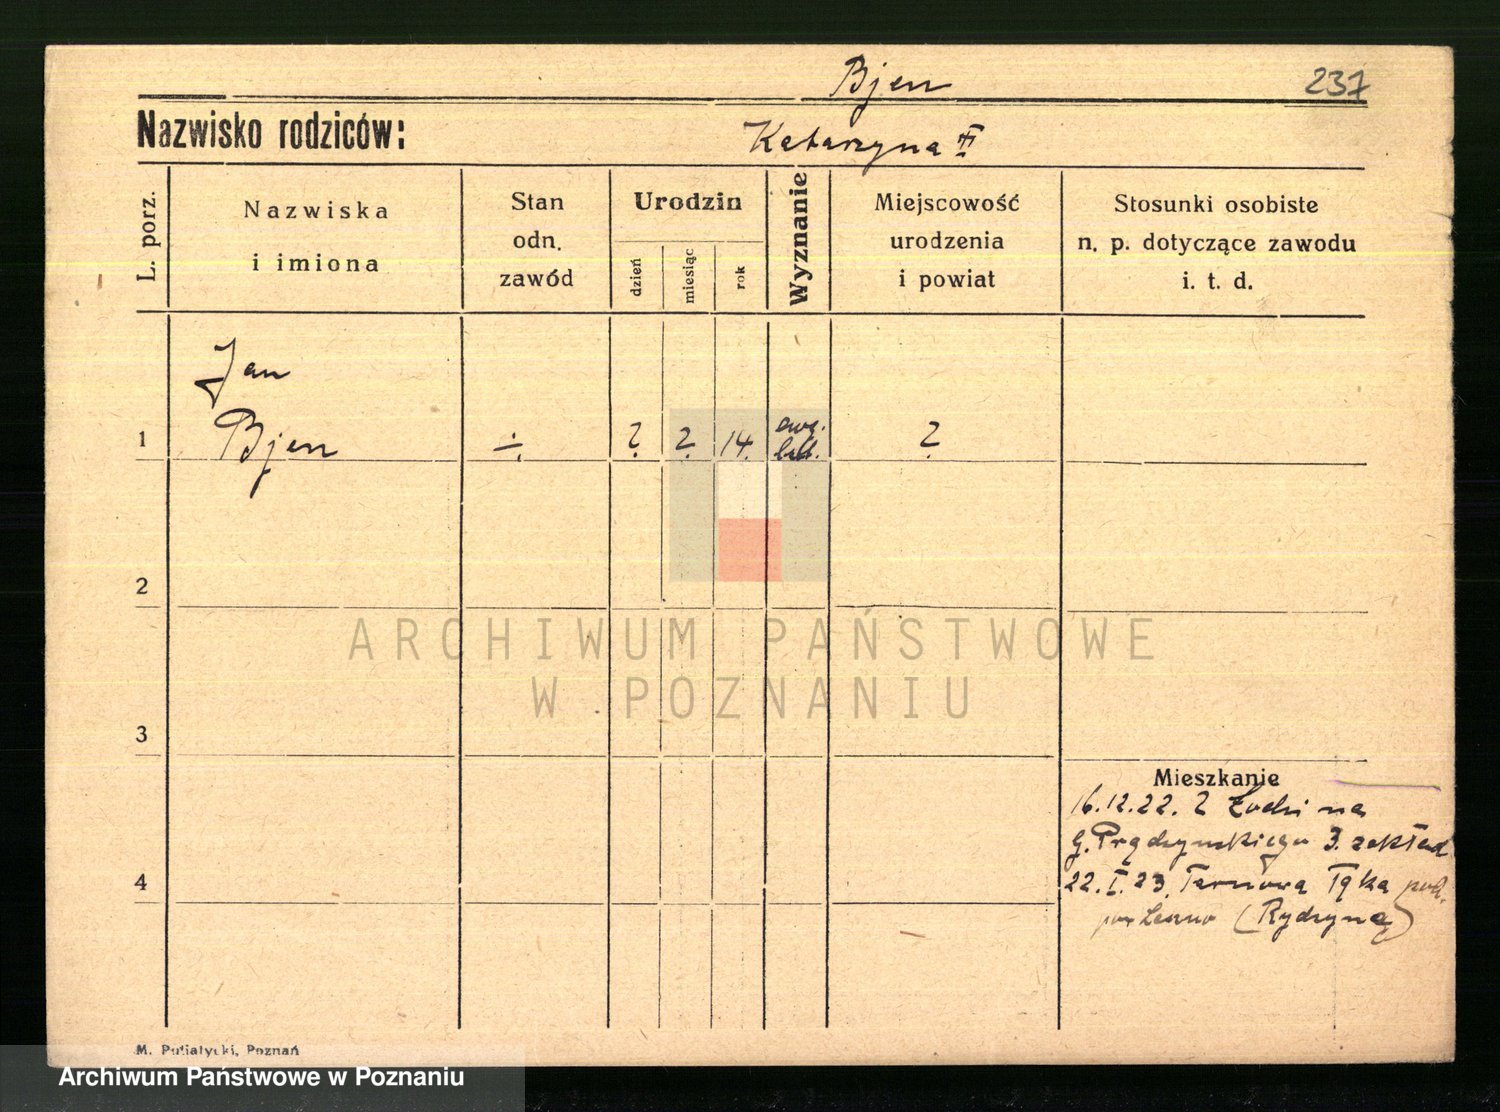 Bjen
237
Nazwisko rodziców:
Katarzyna
L. porz.
Nazwiska
i imiona
Stan
odn.
zawód
Urodzin
dzień
miesiąc
rok
Wyznanie
Miejscowość
urodzenia
i powiat
Stosunki osobiste
n. p. dotyczące zawodu
i. t. d.
Jan
1 Bjen ÷ ? ? 14. ewg. ?
2
ARCHIWUM PAŃSTWOWE
W POZNANIU
3
Mieszkanie
16.12.22. Z Łodzi na
G. Prądzyńskiego 3. zakład
4
22.I.23. Tarnowa Łąka pod.
pow Leszno (Rydzyna)
M. Putiatycki, Poznań
Archiwum Państwowe w Poznaniu